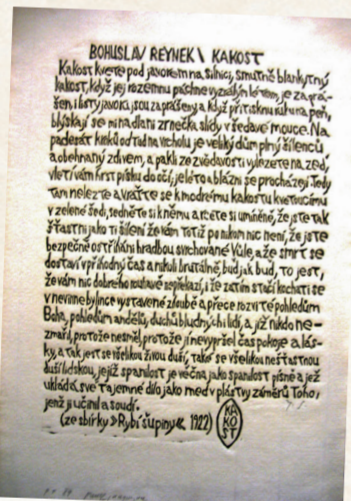 BOHUSLAV REYNEK \ KAKOST
Kakost kvete pod javorem na silnici, smutně blankytný
kakost, když jej rozemnu páchne vyzrálým létem, je zaprá-
šen, i listy javorů jsou zaprášeny, a když přitisknu ruku na peň,
blýskají se mi na dlani zrnečka slídy v šedavé mouce. Na
padesát kroků od tad na vrcholu je veliký dům plný šílenců
a obehnaný zdivem, a pakli ze zvědavosti vylezete na zeď,
vletí vám hrst písku do očí, je léto a blázni se procházejí. Tedy
tam nelezte a vraťte se k modrému kakostu kvetoucímu
v zelené šedi, sedněte si k němu a rcete si umíněně, že jste tak
šťastni jako ti šílení že vám totiž po nikom nic není, že jste
bezpečně ostříháni hradbou svrchované Vůle, a že smrt se
dostaví v příhodný čas a nikoli brutálně, buď jak buď, to jest,
že vám nic dobrého neufekají, i že zatím stačí kochati se
v nevinné bylince vystavené zlobě a přece rozvité pohledům
Boha, pohledům andělů, duchů bludných i lidí, a již nikdo ne-
zmařil, protože nesměl, protože jí nevypršel čas pokoje a lás-
ky, a tak jest se všelikou živou duší, také se všelikou nešťastnou
duší lidskou, jejíž spanilost je věčná, jako spanilost písně a jež
ukládá své tajemné dílo jako med v plástvy záměrů Toho,
jenž ji učinil a soudí.
(ze sbírky »Rybí šupiny« 1922)
KA
KO
ST